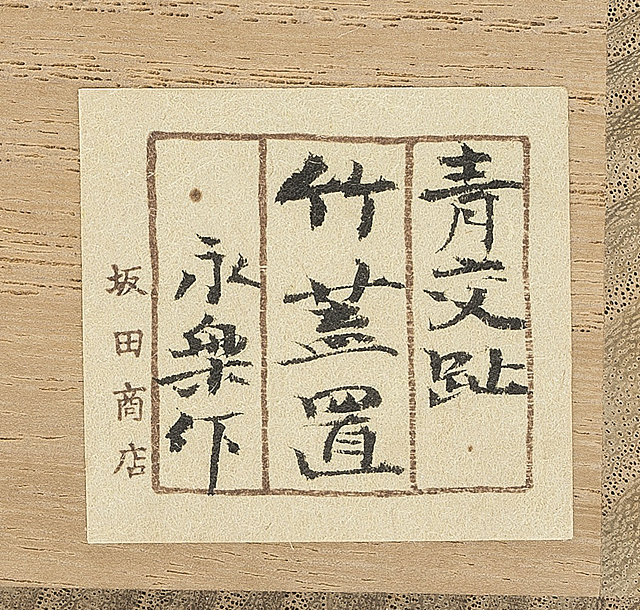 青交趾
竹蓋置
永樂作
坂田商店